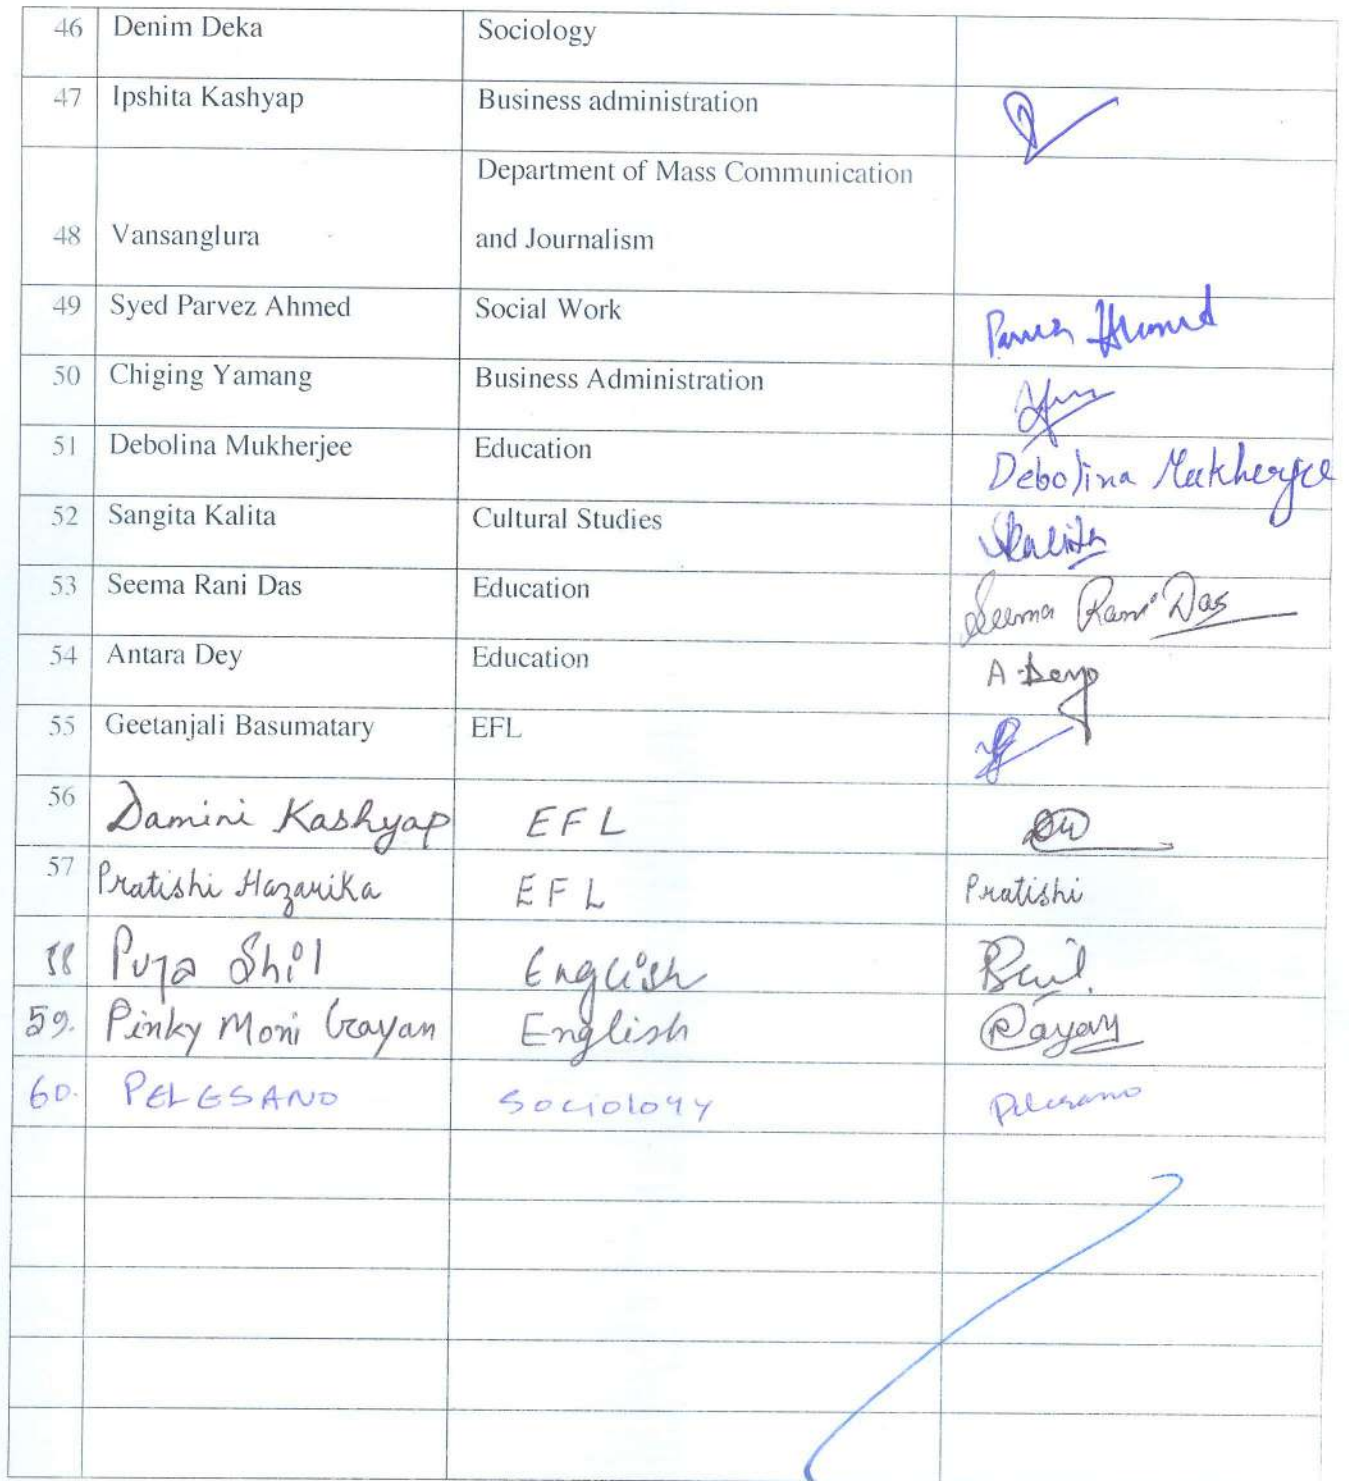 46 Denim Deka Sociology
47 Ipshita Kashyap Business administration
Department of Mass Communication
48 Vansanglura and Journalism
49 Syed Parvez Ahmed Social Work
50 Chiging Yamang Business Administration
51 Debolina Mukherjee Education Debolina Mukherjee
52 Sangita Kalita Cultural Studies
53 Seema Rani Das Education Seema Rani Das
54 Antara Dey Education A Dey
55 Geetanjali Basumatary EFL
56 Damini Kashyap EFL
57 Pratishi Hazarika EFL Pratishi
58 Puja Shil English
59. Pinky Moni Gayan English Gayan
60. PELESANO Sociology Pelesano